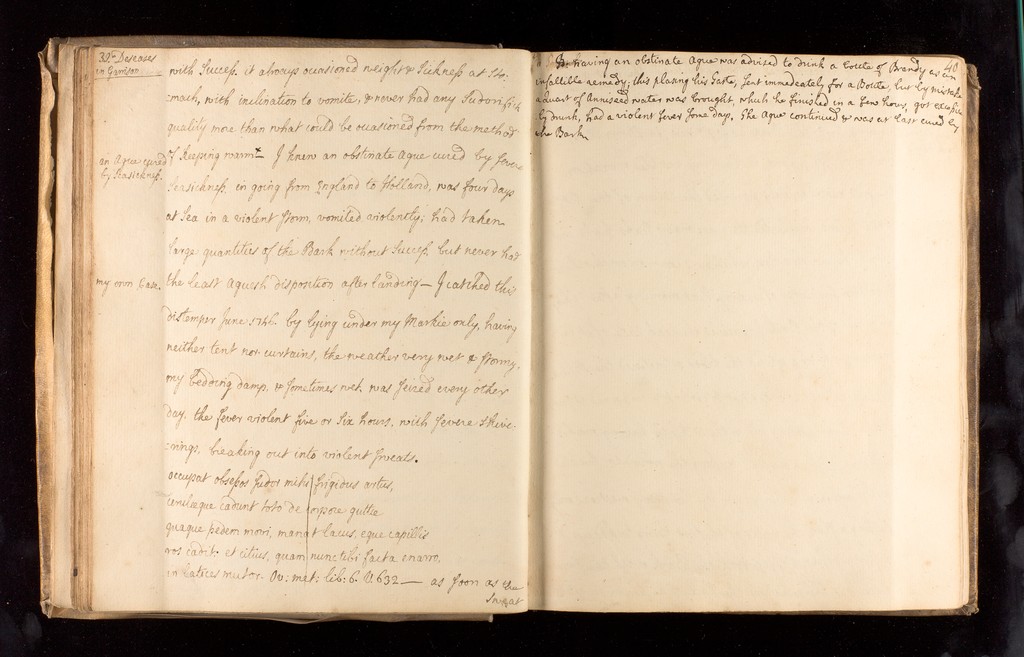 39. Deseases
in Garrison
with Success. it always occasioned weight & Sickness at Sto:
:mach, with inclination to vomite, & never had any Sudorifick
quality more than what could be occasioned from the method
of keeping warm x I knew an obstinate Ague cured by severe
an Ague cured
by Seasickness.
Seasickness, in going from England to Holland, was four days
at Sea in a violent Storm, vomited violently; had taken
large quantities of the Bark without Success. but never had
the least Aguish disposition after landing — I catched this
my own Case.
distemper June 1746. by lying under my Markie only, having
neither tent nor curtains, the weather very wet & stormy,
my bedding damp, & sometimes wet. was seized every other
day. the fever violent five or Six hours, with severe Shive:
:rings, breaking out into violent sweats.
occupat obsessos sudor mihi frigidus artus,
cerulæque cadunt toto de corpore guttæ
quaque pedem movi, manat lacus, eque capillis
ros cadit. et citius, quam nunc tibi facta enarro,
in latices mutor. Ov: met: lib: 6. V 632 — as soon as the
Sweat
40
having an obstinate Ague was advised to drink a bottle of Brandy as an
infallible remedy; this pleasing his taste, sent immediately for a Bottle, but by mistake
a quart of Anniseed water was brought, which he finished in a few hours, got excessive
:ly drunk, had a violent fever some days. The Ague continued & was at last cured by
the Bark